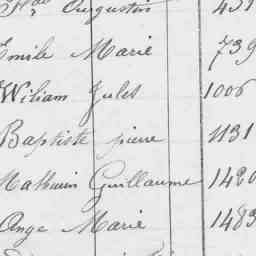 Augustin 451
Emile Marie 739
Wiliam Jules 1006
Baptiste pierre 1131
Mathurin Guillaume 1420
Ange Marie 1483